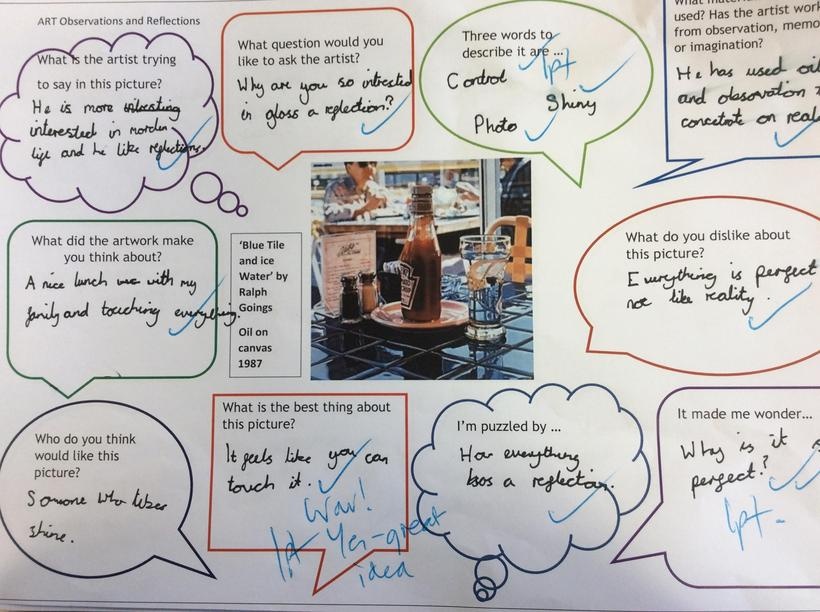 ART Observations and Reflections
What is the artist trying
to say in this picture?
He is more
interested in morden
life and he like reflections.
What question would you
like to ask the artist?
Why are you so intrested
in gloss a reflection?
Three words to
describe it are ...
1pt
Control
Shiny
Photo
used? Has the artist work
from observation, memo
or imagination?
He has used oil
and observation
concetrate on real
What did the artwork make
you think about?
A nice lunch with my
family and touching everything.
'Blue Tile
and ice
Water' by
Ralph
Goings
Oil on
canvas
1987
What do you dislike about
this picture?
Everything is perfect
not like reality.
Who do you think
would like this
picture?
Someone who likes
shine.
What is the best thing about
this picture?
It feels like you can
touch it.
Wow!
1pt Yes-great
idea
I'm puzzled by ...
How everything
has a reflection.
It made me wonder...
Why is it s
perfect?
1pt-